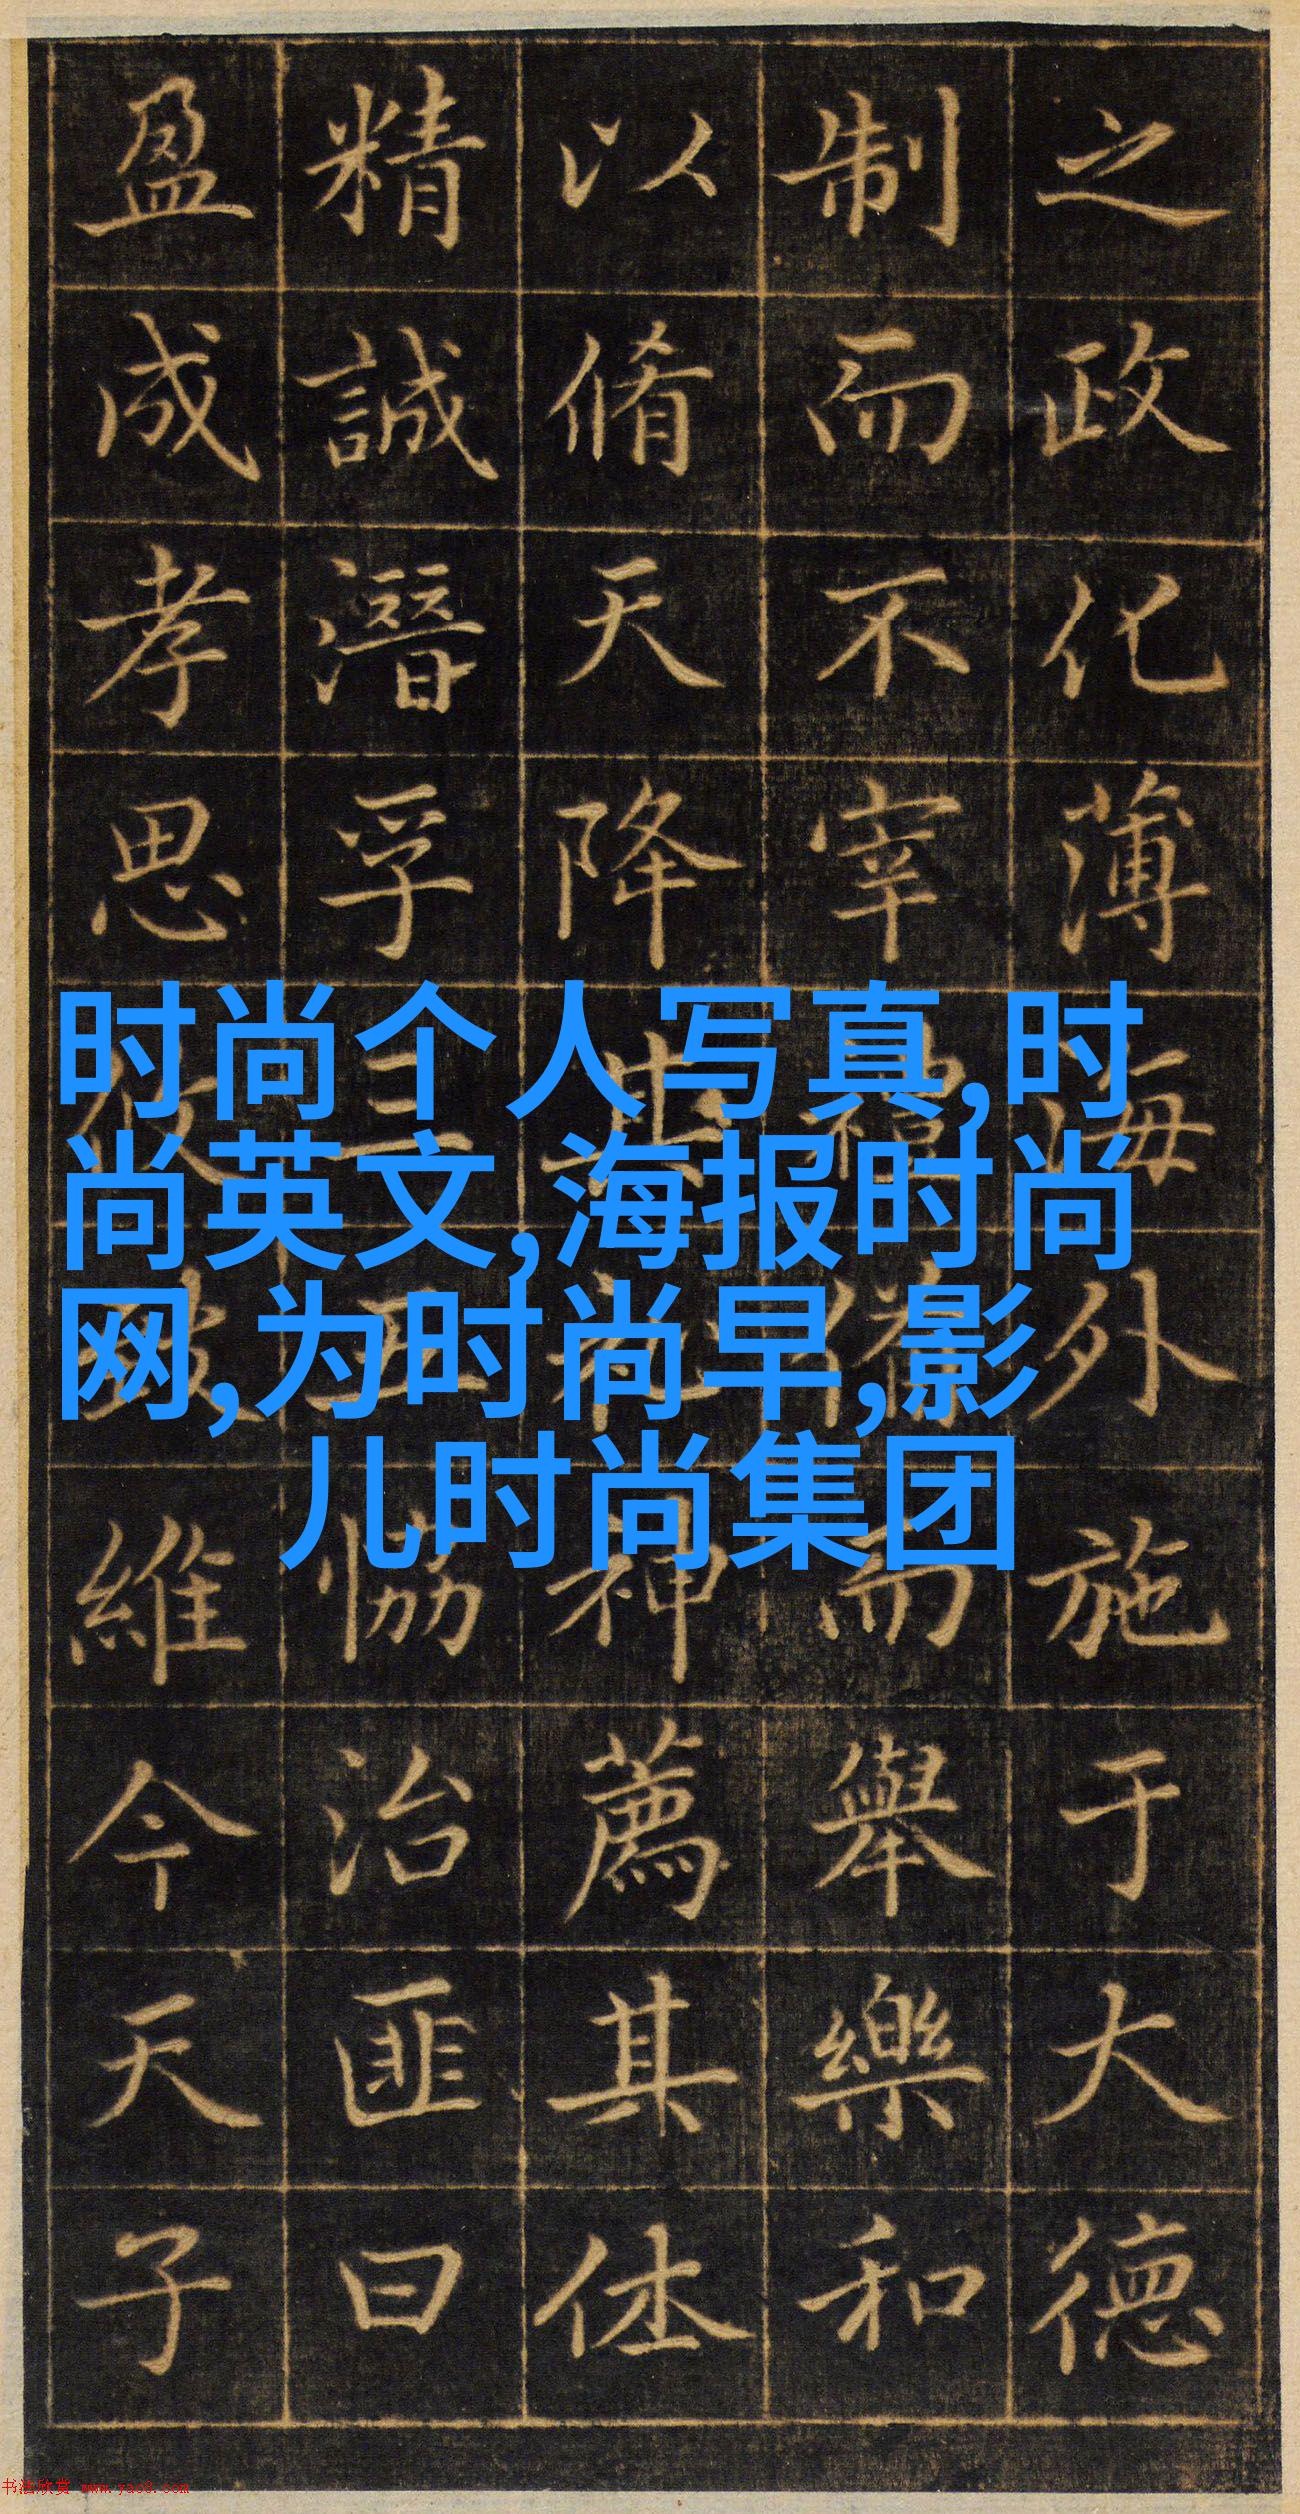 时尚个人写真,时
尚英文,海报时尚
网,为时尚早,影
儿时尚集团
之政化薄海外施于大德
制而不宰禮備而舉樂和
以脩天降其祉神薦其休
精誠潛孚三五恊治匪曰
盈成孝思維今天子
书法欣赏 www.yac8.com